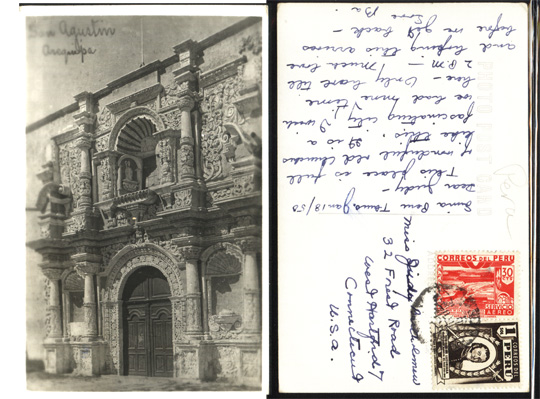 San Agustin
Arequipa
Jan 18/50
Dear Judy -
This place is full
of wonderful old churches
like this. It is a
fascinating city. I wish
we had more time
here - Only have till
2 P.M. - Must live
and hoping this arrives
before we get back -
Love
Miss Judy
32 Fred Road
West Hartford 7
Connecticut
U.S.A.
Peru
CORREOS DEL PERU
30
SERVICIO
AEREO
1
CORREOS DEL
PERU